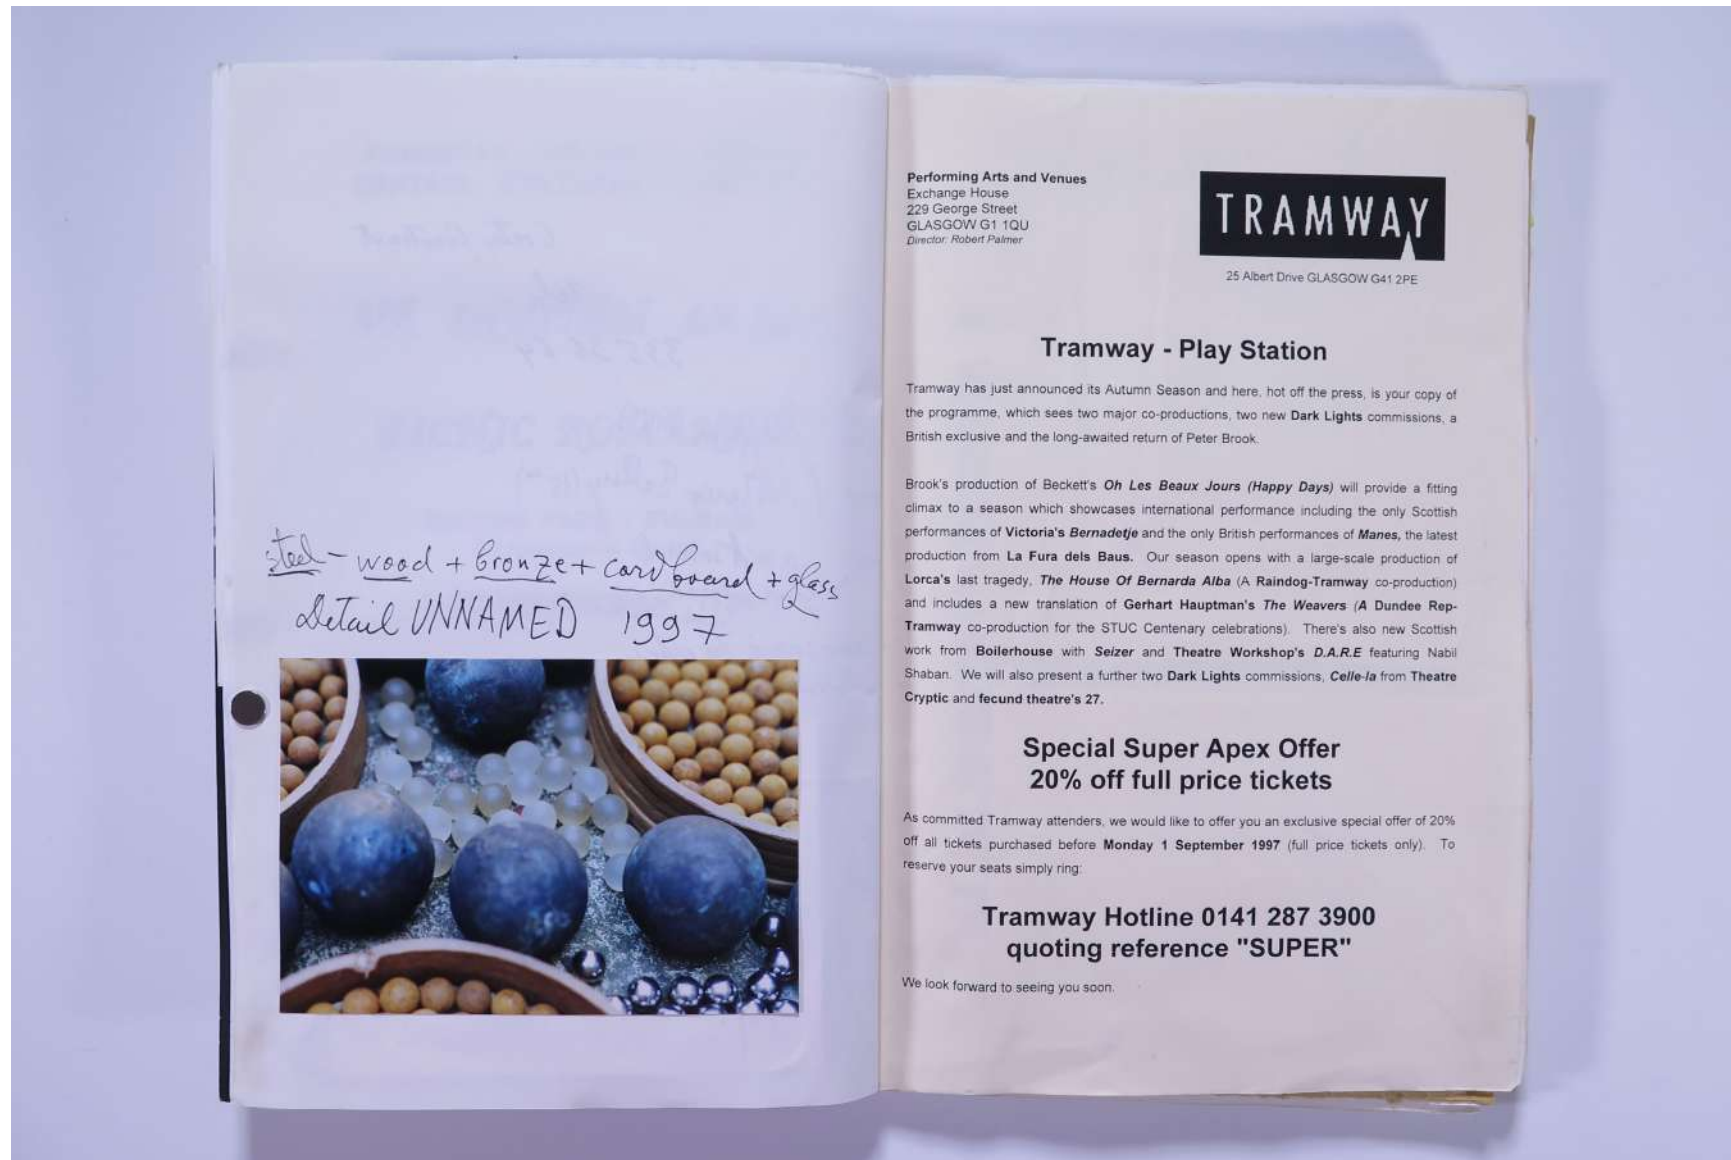 steel - wood + bronze + cardboard + glass
Detail UNNAMED 1997
Performing Arts and Venues
Exchange House
229 George Street
GLASGOW G1 1QU
Director: Robert Palmer
TRAMWAY
25 Albert Drive GLASGOW G41 2PE
Tramway - Play Station
Tramway has just announced its Autumn Season and here, hot off the press, is your copy of
the programme, which sees two major co-productions, two new Dark Lights commissions, a
British exclusive and the long-awaited return of Peter Brook.
Brook's production of Beckett's Oh Les Beaux Jours (Happy Days) will provide a fitting
climax to a season which showcases international performance including the only Scottish
performances of Victoria's Bernadetje and the only British performances of Manes, the latest
production from La Fura dels Baus. Our season opens with a large-scale production of
Lorca's last tragedy, The House Of Bernarda Alba (A Raindog-Tramway co-production)
and includes a new translation of Gerhart Hauptman's The Weavers (A Dundee Rep-
Tramway co-production for the STUC Centenary celebrations). There's also new Scottish
work from Boilerhouse with Seizer and Theatre Workshop's D.A.R.E featuring Nabil
Shaban. We will also present a further two Dark Lights commissions, Celle-la from Theatre
Cryptic and fecund theatre's 27.
Special Super Apex Offer
20% off full price tickets
As committed Tramway attenders, we would like to offer you an exclusive special offer of 20%
off all tickets purchased before Monday 1 September 1997 (full price tickets only). To
reserve your seats simply ring:
Tramway Hotline 0141 287 3900
quoting reference "SUPER"
We look forward to seeing you soon.